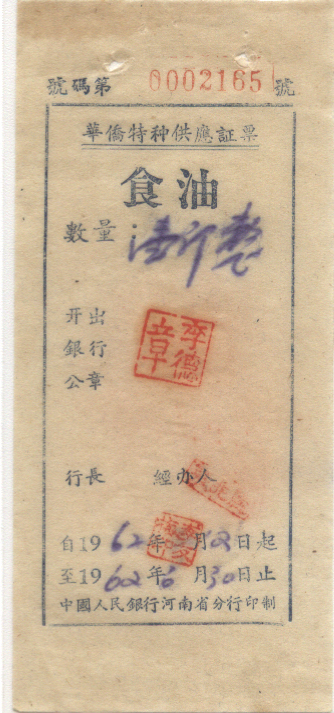 號碼第 0002165 號
華僑特种供應証票
食油
數量：壹斤整
开出
銀行
公章
李德
章
行長 經办人
自1962年 月2日起
至1962年6月30日止
中國人民銀行河南省分行印制